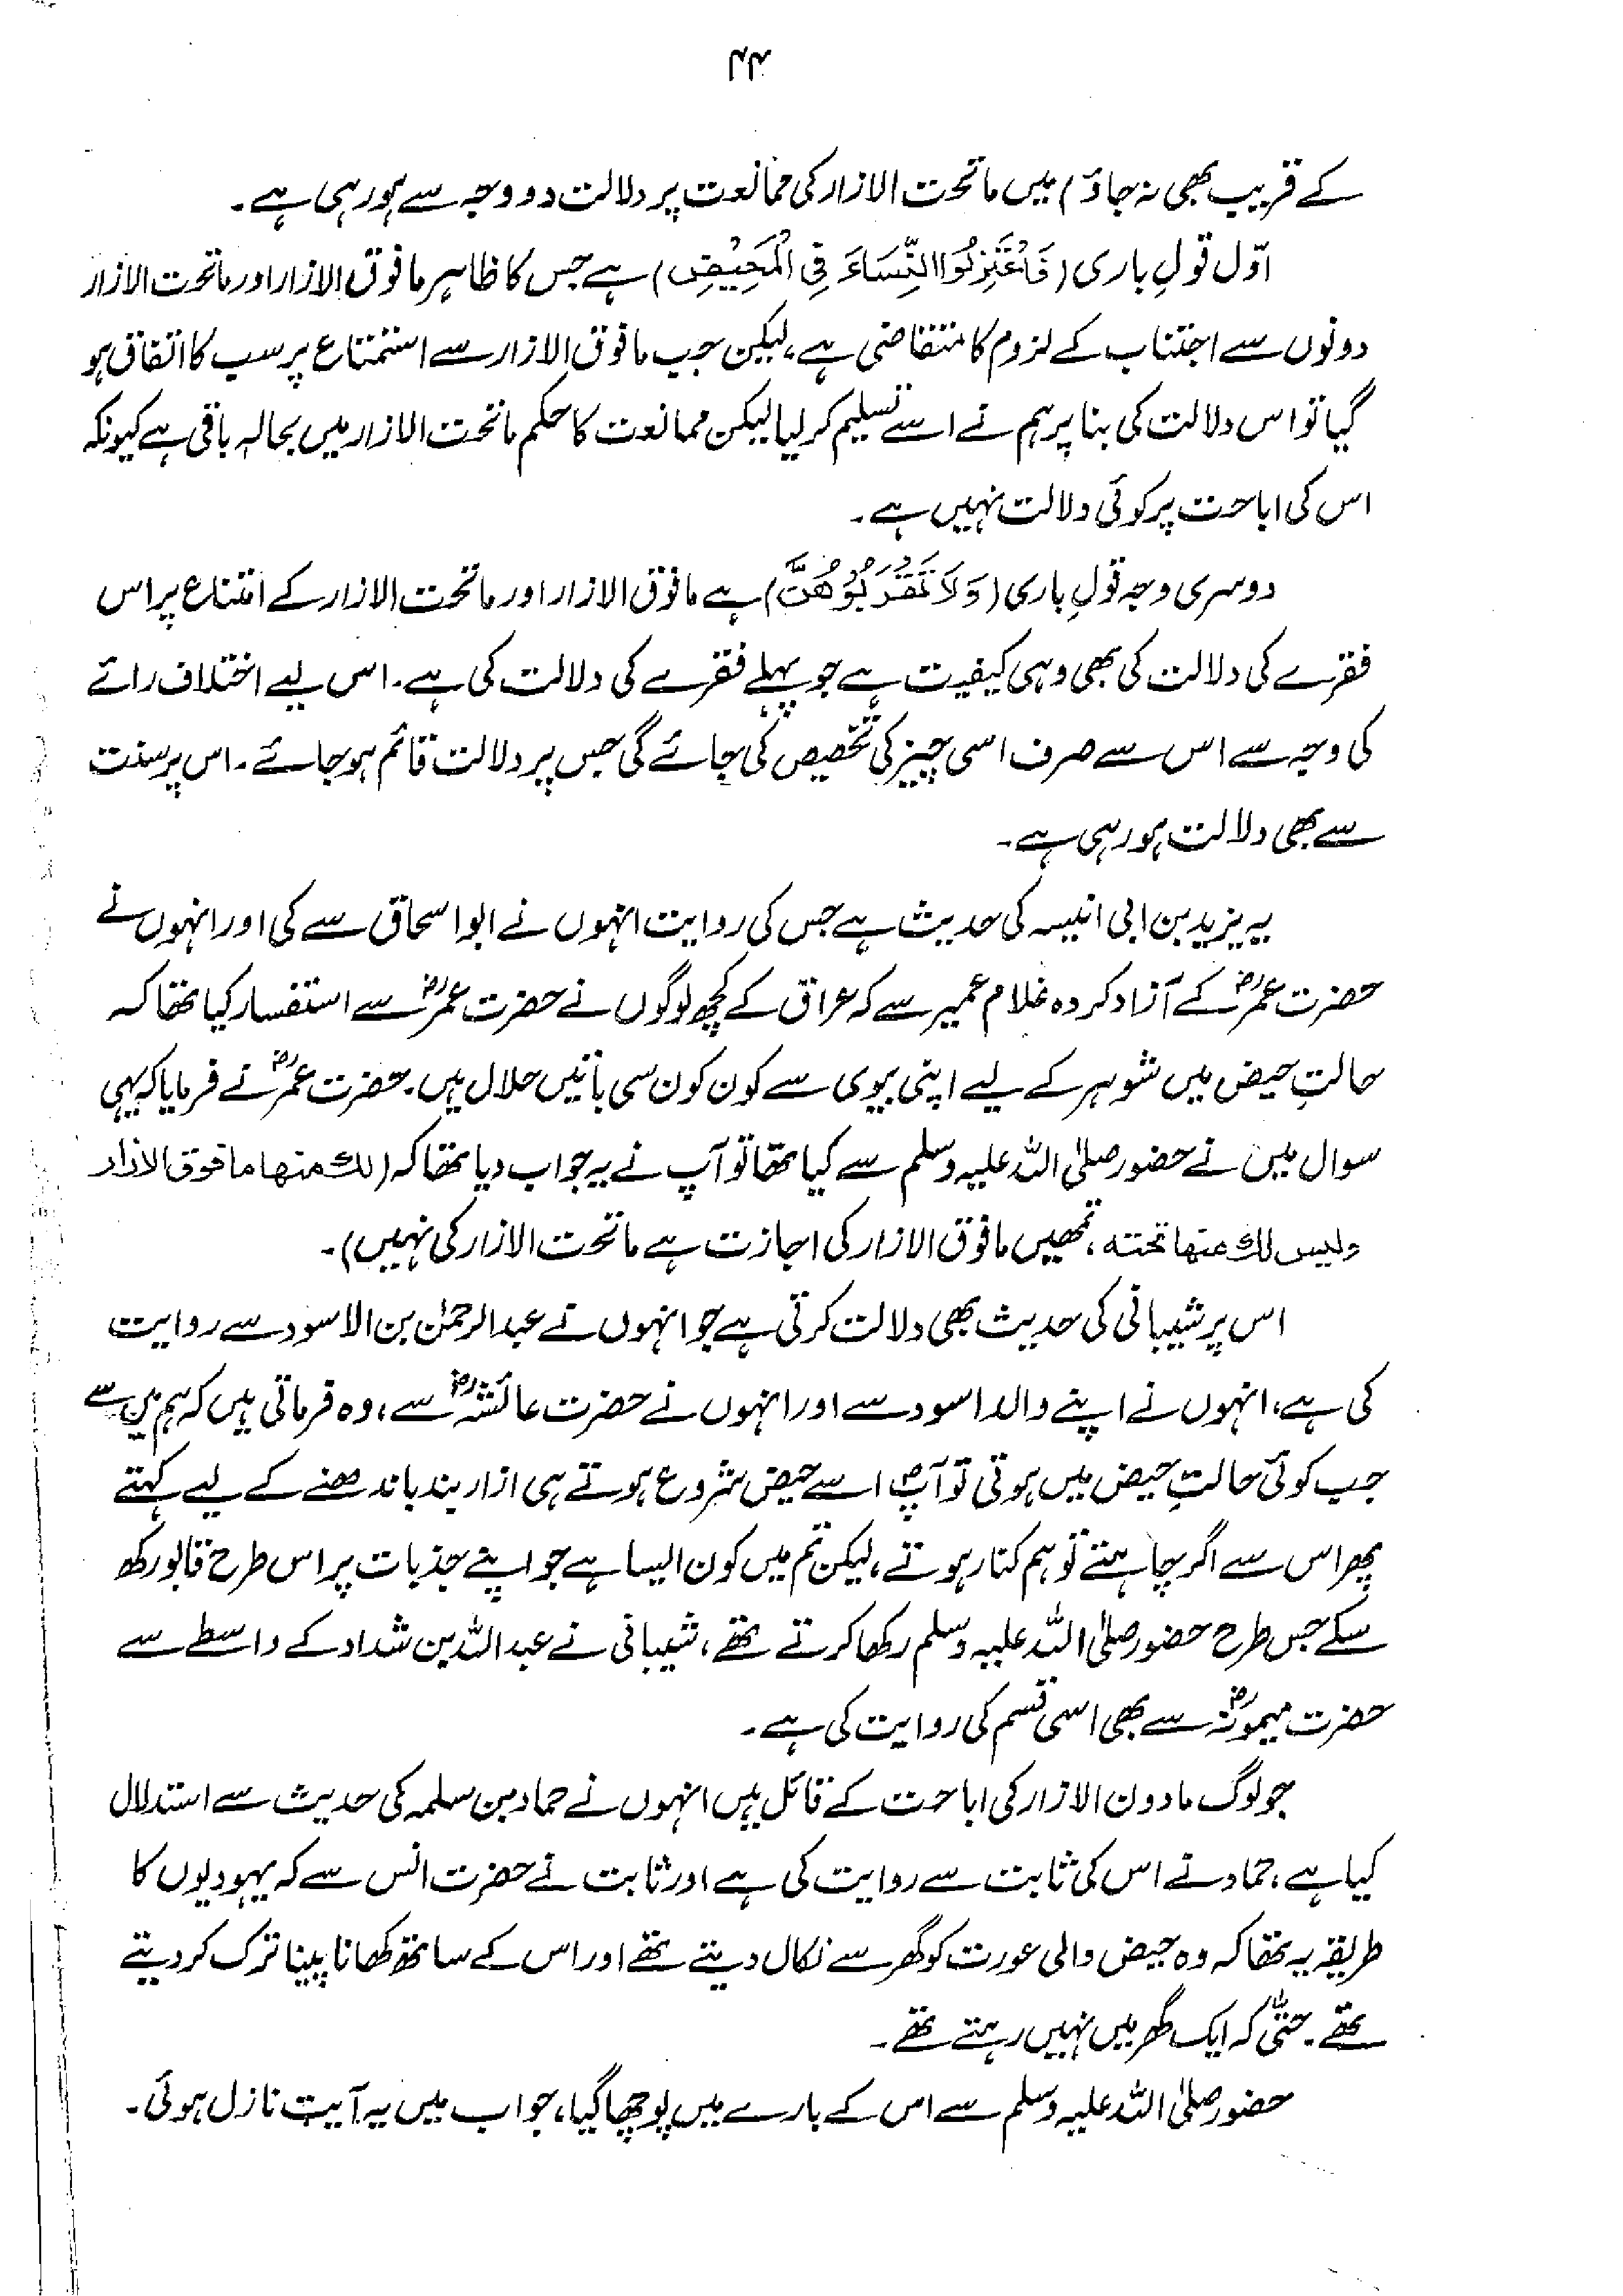 ۴۴
کے قریب بھی نہ جاؤ) میں ماتحت الازار کی ممانعت پر دلالت دو وجہ سے ہو رہی ہے۔
اوّل قولِ باری (فَاعْتَزِلُوا النِّسَاءَ فِی الْمَحِیْضِ) ہے جس کا ظاہر مافوق الازار اور ماتحت الازار
دونوں سے اجتناب کے لزوم کا متقاضی ہے، لیکن جب مافوق الازار سے استمتاع پر سب کا اتفاق ہو
گیا تو اس دلالت کی بنا پر ہم نے اسے تسلیم کر لیا لیکن ممانعت کا حکم ماتحت الازار میں بحالہ باقی ہے کیونکہ
اس کی اباحت پر کوئی دلالت نہیں ہے۔
دوسری وجہ قولِ باری (وَلَا تَقْرَبُوْهُنَّ) ہے مافوق الازار اور ماتحت الازار کے امتناع پر اس
فقرے کی دلالت کی بھی وہی کیفیت ہے جو پہلے فقرے کی دلالت کی ہے۔ اس لیے اختلاف رائے
کی وجہ سے اس سے صرف اسی چیز کی تخصیص کی جائے گی جس پر دلالت قائم ہو جائے۔ اس پر سنت
سے بھی دلالت ہو رہی ہے۔
یہ یزید بن ابی انیسہ کی حدیث ہے جس کی روایت انہوں نے ابو اسحاق سے کی اور انہوں نے
حضرت عمرؓ کے آزاد کردہ غلام عمیر سے کہ عراق کے کچھ لوگوں نے حضرت عمرؓ سے استفسار کیا تھا کہ
حالتِ حیض میں شوہر کے لیے اپنی بیوی سے کون کون سی باتیں حلال ہیں۔ حضرت عمرؓ نے فرمایا کہ یہی
سوال میں نے حضور صلی اللہ علیہ وسلم سے کیا تھا تو آپ نے یہ جواب دیا تھا کہ (لك منها ما فوق الازار
وليس لك منها تحته، تمھیں مافوق الازار کی اجازت ہے ماتحت الازار کی نہیں)۔
اس پر شیبانی کی حدیث بھی دلالت کرتی ہے جو انہوں نے عبدالرحمٰن بن الاسود سے روایت
کی ہے، انہوں نے اپنے والد اسود سے اور انہوں نے حضرت عائشہؓ سے، وہ فرماتی ہیں کہ ہم میں سے
جب کوئی حالتِ حیض میں ہوتی تو آپؐ اسے حیض شروع ہوتے ہی ازار بند باندھنے کے لیے کہتے
پھر اس سے اگر چاہتے تو ہم کنار ہوتے، لیکن تم میں کون ایسا ہے جو اپنے جذبات پر اس طرح قابو رکھ
سکے جس طرح حضور صلی اللہ علیہ وسلم رکھا کرتے تھے، شیبانی نے عبداللہ بن شداد کے واسطے سے
حضرت میمونہؓ سے بھی اسی قسم کی روایت کی ہے۔
جو لوگ مادون الازار کی اباحت کے قائل ہیں انہوں نے حماد بن سلمہ کی حدیث سے استدلال
کیا ہے، حماد نے اس کی ثابت سے روایت کی ہے اور ثابت نے حضرت انس سے کہ یہودیوں کا
طریقہ یہ تھا کہ وہ حیض والی عورت کو گھر سے نکال دیتے تھے اور اس کے ساتھ کھانا پینا ترک کر دیتے
تھے۔ حتیٰ کہ ایک گھر میں نہیں رہتے تھے۔
حضور صلی اللہ علیہ وسلم سے اس کے بارے میں پوچھا گیا، جواب میں یہ آیت نازل ہوئی۔